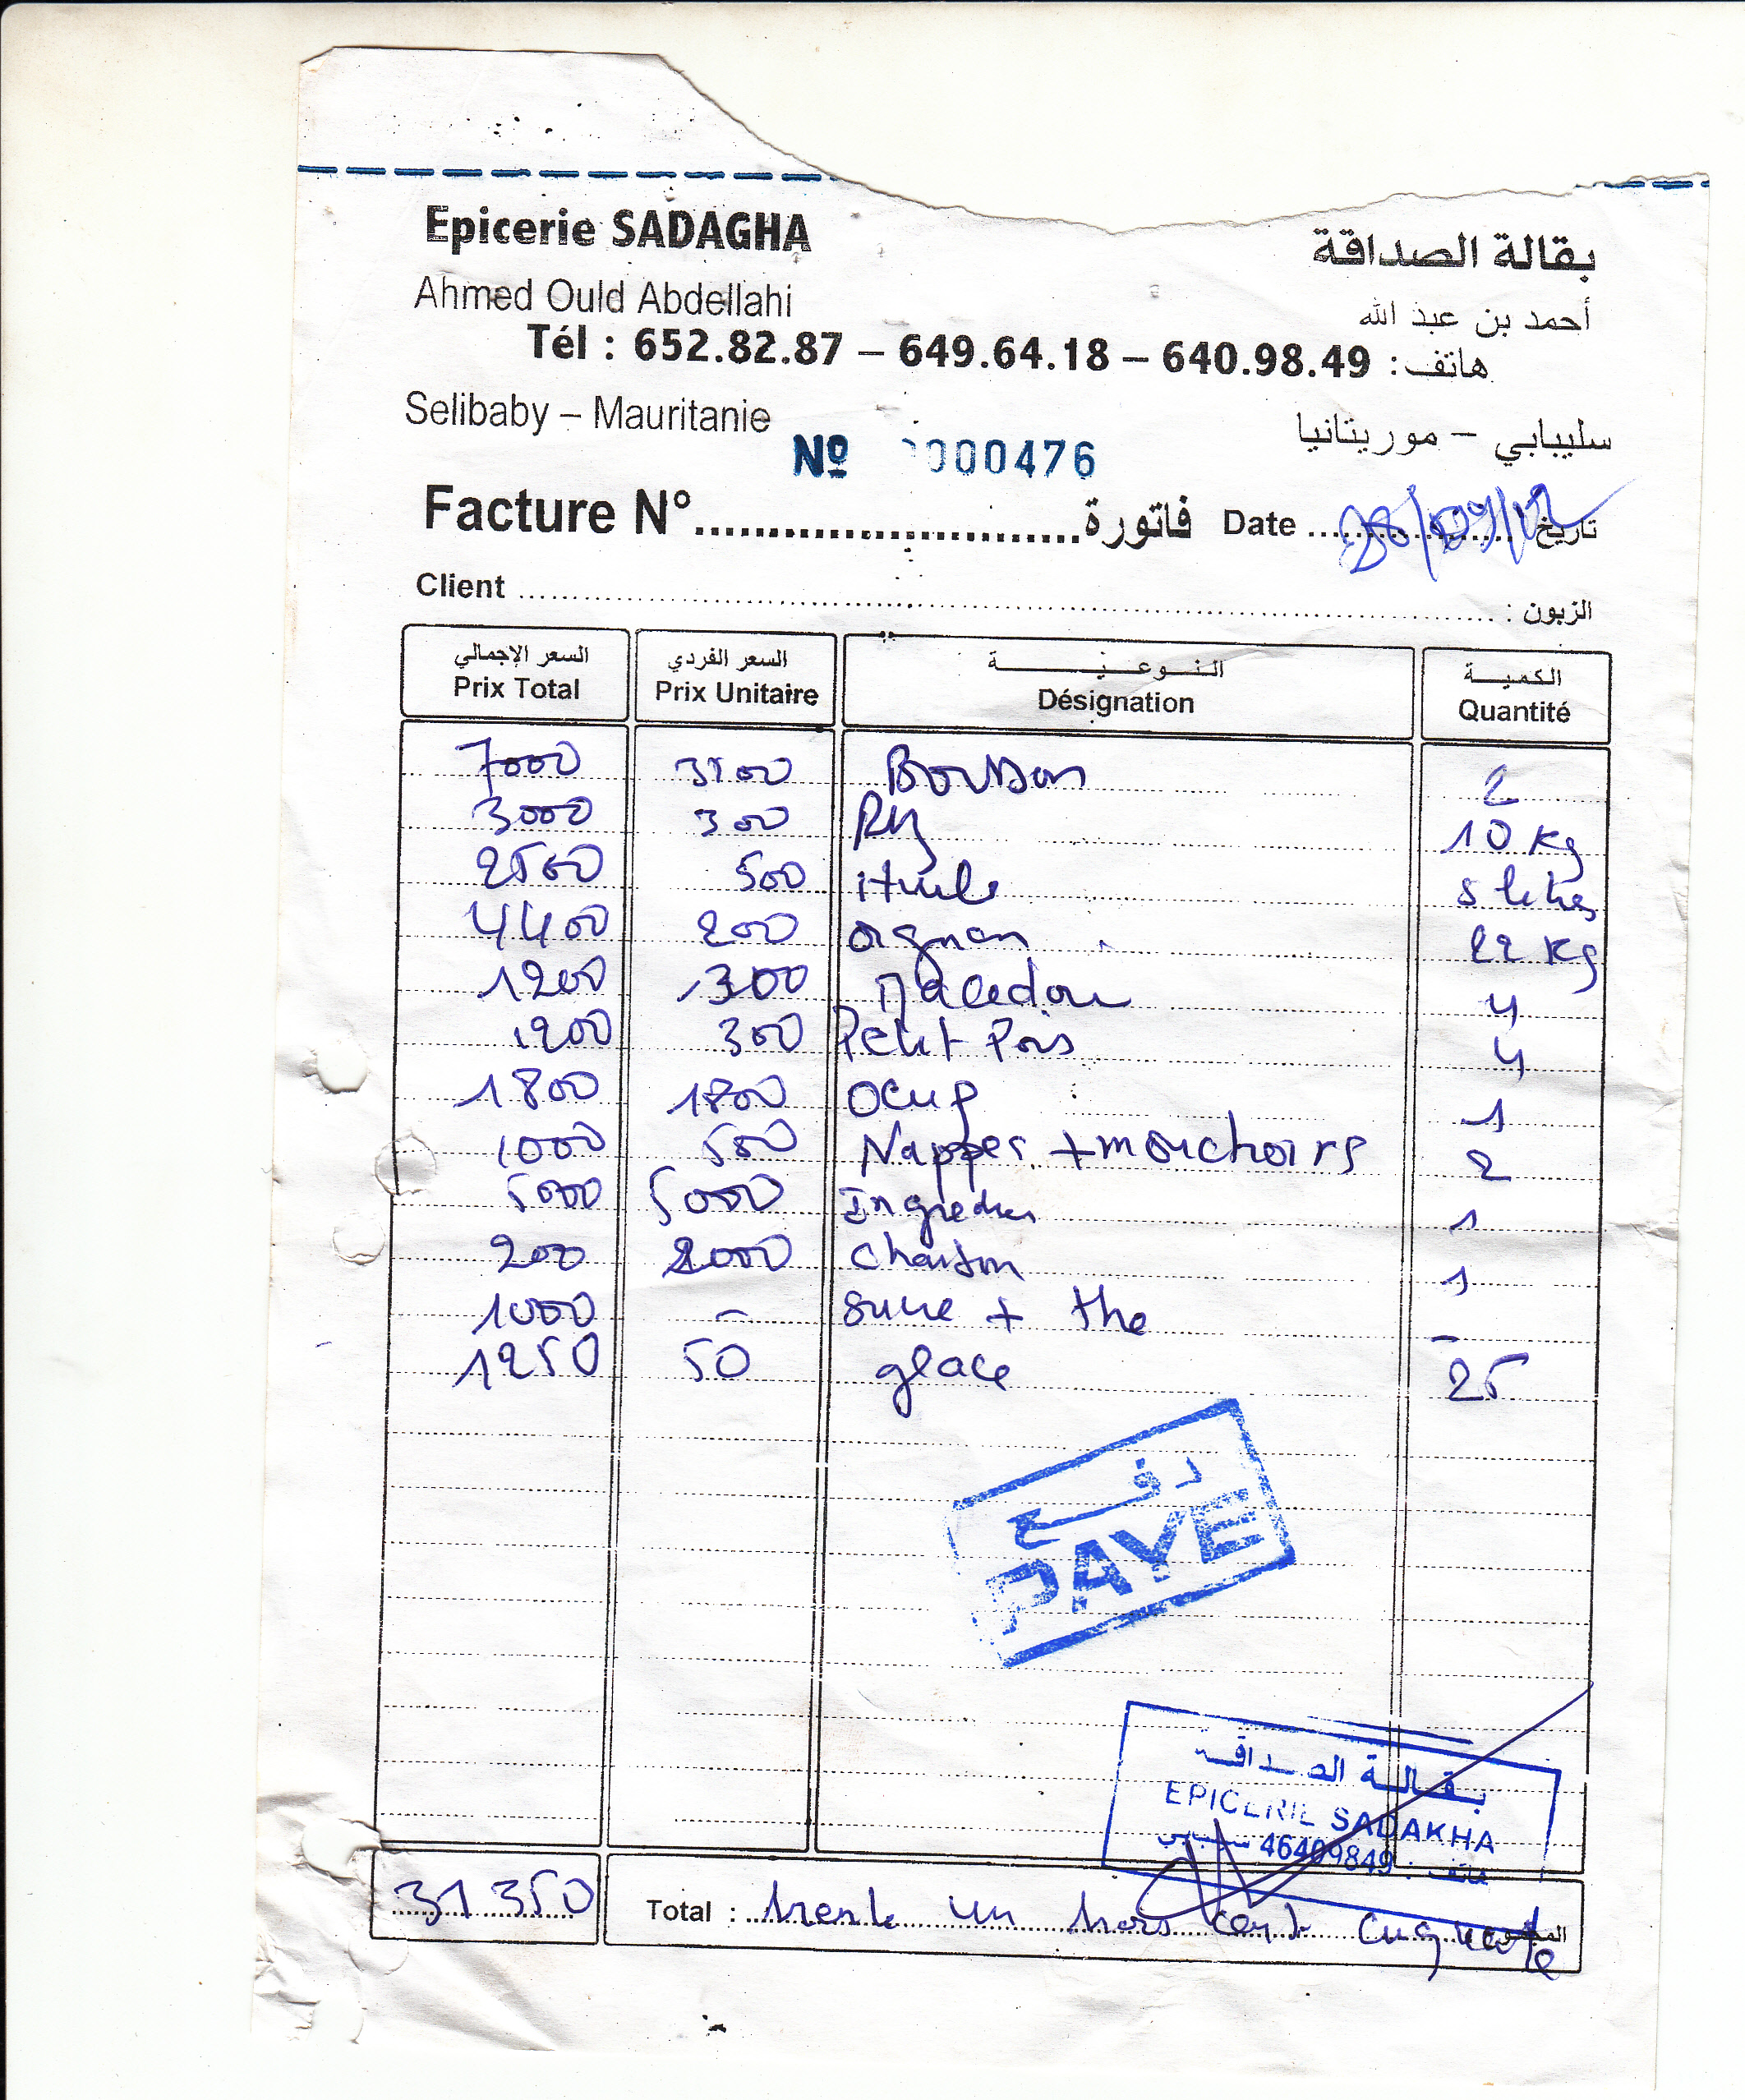 Epicerie SADAGHA بقالة الصداقة
Ahmed Ould Abdellahi أحمد بن عبد الله
Tél : 652.82.87 – 649.64.18 – 640.98.49 هاتف:
Selibaby – Mauritanie سليبابي – موريتانيا
Nº 0000476
Facture N° فاتورة Date 28/09/12 تاريخ
Client الزبون :
السعر الإجمالي السعر الفردي النوعية الكمية
Prix Total Prix Unitaire Désignation Quantité
7000 3500 Boisson 2
3000 300 Riz 10 Kg
2500 500 Huile 5 litres
4400 200 oignon 22 Kg
1200 300 Macedoin 4
1200 300 Petit Pois 4
1800 1800 Ocup 1
1000 500 Nappes +mouchoirs 2
5000 5000 Ingredien 1
200 2000 charbon 1
1000 – sucre + the –
1250 50 glace 25
دفع
PAYE
بقالة الصداقة
EPICERIE SADAKHA
هاتف : 46409849 سليبابي
31 350 Total : trente un trois cent cinquante المجموع